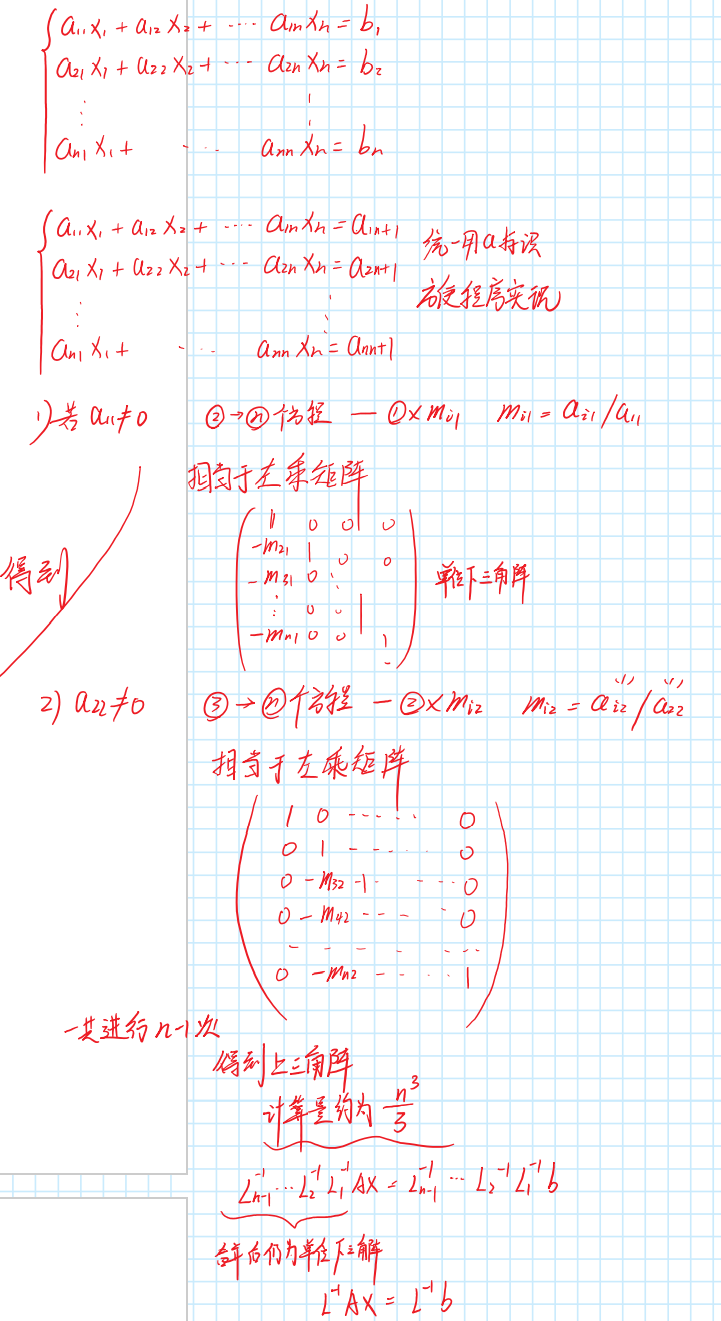 a₁₁x₁ + a₁₂x₂ + ⋯ a₁ₙxₙ = b₁
a₂₁x₁ + a₂₂x₂ + ⋯ a₂ₙxₙ = b₂
⋮ ⋮
aₙ₁x₁ + ⋯ aₙₙxₙ = bₙ
a₁₁x₁ + a₁₂x₂ + ⋯ a₁ₙxₙ = a₁ₙ₊₁
a₂₁x₁ + a₂₂x₂ + ⋯ a₂ₙxₙ = a₂ₙ₊₁
⋮ ⋮
aₙ₁x₁ + ⋯ aₙₙxₙ = aₙₙ₊₁
统一用a标识
方便程序实现
1) 若 a₁₁≠0 ②→ⓝ个方程 — ①×mᵢ₁ mᵢ₁ = aᵢ₁/a₁₁
相当于左乘矩阵
1 0 0 0
-m₂₁ 1 0 0
-m₃₁ 0 ⋱
⋮ 0 0 1
-mₙ₁ 0 0 1
单位下三角阵
得到
2) a₂₂≠0 ③→ⓝ个方程 — ②×mᵢ₂ mᵢ₂ = aᵢ₂⁽¹⁾/a₂₂⁽¹⁾
相当于左乘矩阵
1 0 ⋯⋯ 0
0 1 ⋯⋯ 0
0 -m₃₂ 1 ⋯ 0
0 -m₄₂ ⋯ 0
⋯⋯⋯
0 -mₙ₂ ⋯⋯ 1
一共进行n-1次
得到上三角阵
计算量约为 n³/3
Lₙ₋₁⁻¹ ⋯ L₂⁻¹ L₁⁻¹ AX = Lₙ₋₁⁻¹ ⋯ L₂⁻¹ L₁⁻¹ b
后仍为单位下三
L⁻¹AX = L⁻¹b